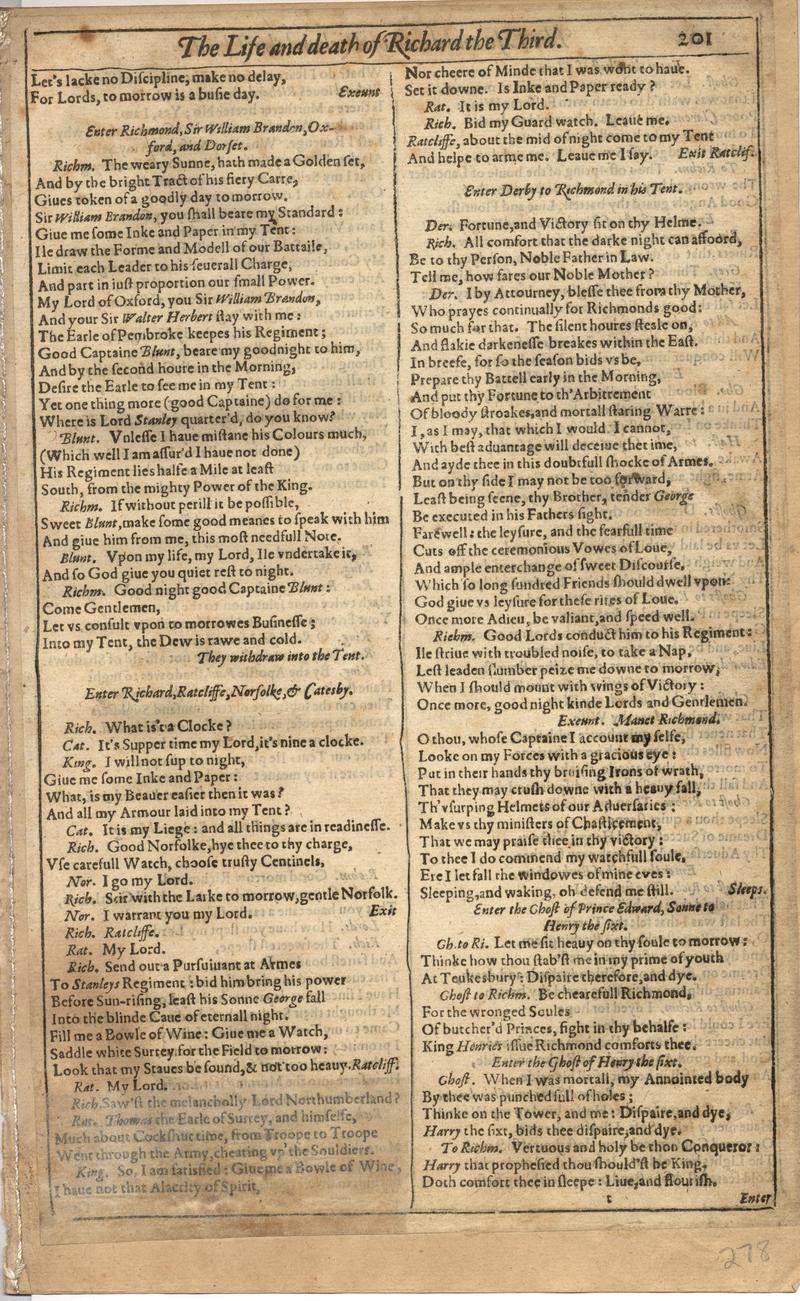 The Life and death of Richard the Third. 201
Let's lacke no Diſcipline, make no delay,
For Lords, to morrow is a buſie day. Exeunt
Enter Richmond, Sir William Brandon, Ox-
ford, and Dorſet.
Richm. The weary Sunne, hath made a Golden ſet,
And by the bright Tract of his fiery Carre,
Giues token of a goodly day to morrow.
Sir William Brandon, you ſhall beare my Standard:
Giue me ſome Inke and Paper in my Tent:
Ile draw the Forme and Modell of our Battaile,
Limit each Leader to his ſeuerall Charge,
And part in iuſt proportion our ſmall Power.
My Lord of Oxford, you Sir William Brandon,
And your Sir Walter Herbert ſtay with me:
The Earle of Pembroke keepes his Regiment;
Good Captaine Blunt, beare my goodnight to him,
And by the ſecond houre in the Morning,
Deſire the Earle to ſee me in my Tent:
Yet one thing more (good Captaine) do for me:
Where is Lord Stanley quarter'd, do you know?
Blunt. Vnleſſe I haue miſtane his Colours much,
(Which well I am aſſur'd I haue not done)
His Regiment lies halfe a Mile at leaſt
South, from the mighty Power of the King.
Richm. If without perill it be poſſible,
Sweet Blunt, make ſome good meanes to ſpeak with him
And giue him from me, this moſt needfull Note.
Blunt. Vpon my life, my Lord, Ile vndertake it,
And ſo God giue you quiet reſt to night.
Richm. Good night good Captaine Blunt:
Come Gentlemen,
Let vs conſult vpon to morrowes Buſineſſe;
Into my Tent, the Dew is rawe and cold.
They withdraw into the Tent.
Enter Richard, Ratcliffe, Norfolke, & Catesby.
Rich. What is't a Clocke?
Cat. It's Supper time my Lord, it's nine a clocke.
King. I will not ſup to night,
Giue me ſome Inke and Paper:
What, is my Beauer eaſier then it was?
And all my Armour laid into my Tent?
Cat. It is my Liege: and all things are in readineſſe.
Rich. Good Norfolke, hye thee to thy charge,
Vſe carefull Watch, chooſe truſty Centinels,
Nor. I go my Lord.
Rich. Stir with the Larke to morrow, gentle Norfolk.
Nor. I warrant you my Lord. Exit
Rich. Ratcliffe.
Rat. My Lord.
Rich. Send out a Purſuiuant at Armes
To Stanleys Regiment: bid him bring his power
Before Sun-riſing, leaſt his Sonne George fall
Into the blinde Caue of eternall night.
Fill me a Bowle of Wine: Giue me a Watch,
Saddle white Surrey for the Field to morrow:
Look that my Staues be ſound, & not too heauy. Ratcliff.
Rat. My Lord.
Rich. Saw'ſt the melancholly Lord Northumberland?
Rat. Thomas the Earle of Surrey, and himſelfe,
Much about Cockſhut time, from Troope to Troope
Went through the Army, chearing vp the Souldiers.
King. So, I am ſatisfied: Giue me a Bowle of Wine,
I haue not that Alacrity of Spirit,
Nor cheere of Minde that I was wont to haue.
Set it downe. Is Inke and Paper ready?
Rat. It is my Lord.
Rich. Bid my Guard watch. Leaue me.
Ratcliffe, about the mid of night come to my Tent
And helpe to arme me. Leaue me I ſay. Exit Ratclif.
Enter Derby to Richmond in his Tent.
Der. Fortune, and Victory ſit on thy Helme.
Rich. All comfort that the darke night can affoord,
Be to thy Perſon, Noble Father in Law.
Tell me, how fares our Noble Mother?
Der. I by Attourney, bleſſe thee from thy Mother,
Who prayes continually for Richmonds good:
So much for that. The ſilent houres ſteale on,
And flakie darkeneſſe breakes within the Eaſt.
In breefe, for ſo the ſeaſon bids vs be,
Prepare thy Battell early in the Morning,
And put thy Fortune to th'Arbitrement
Of bloody ſtroakes, and mortall ſtaring Warre:
I, as I may, that which I would I cannot,
With beſt aduantage will deceiue the time,
And ayde thee in this doubtfull ſhocke of Armes.
But on thy ſide I may not be too forward,
Leaſt being ſeene, thy Brother, tender George
Be executed in his Fathers ſight.
Farewell: the leyſure, and the fearfull time
Cuts off the ceremonious Vowes of Loue,
And ample enterchange of ſweet Diſcourſe,
Which ſo long ſundred Friends ſhould dwell vpon:
God giue vs leyſure for theſe rites of Loue.
Once more Adieu, be valiant, and ſpeed well.
Richm. Good Lords conduct him to his Regiment:
Ile ſtriue with troubled noiſe, to take a Nap,
Leſt leaden ſlumber peize me downe to morrow,
When I ſhould mount with wings of Victory:
Once more, good night kinde Lords and Gentlemen.
Exeunt. Manet Richmond.
O thou, whoſe Captaine I account my ſelfe,
Looke on my Forces with a gracious eye:
Put in their hands thy bruiſing Irons of wrath,
That they may cruſh downe with a heauy fall,
Th'vſurping Helmets of our Aduerſaries:
Make vs thy miniſters of Chaſticement,
That we may praiſe thee in thy victory:
To thee I do commend my watchfull ſoule,
Ere I let fall the windowes of mine eyes:
Sleeping, and waking, oh defend me ſtill. Sleeps.
Enter the Ghoſt of Prince Edward, Sonne to
Henry the ſixt.
Gh. to Ri. Let me ſit heauy on thy ſoule to morrow:
Thinke how thou ſtab'ſt me in my prime of youth
At Teukesbury: Diſpaire therefore, and dye.
Ghoſt to Richm. Be chearefull Richmond,
For the wronged Soules
Of butcher'd Princes, fight in thy behalfe:
King Henries iſſue Richmond comforts thee.
Enter the Ghoſt of Henry the ſixt.
Ghoſt. When I was mortall, my Annointed body
By thee was punched full of holes;
Thinke on the Tower, and me: Diſpaire, and dye,
Harry the ſixt, bids thee diſpaire, and dye.
To Richm. Vertuous and holy be thou Conqueror:
Harry that propheſied thou ſhould'ſt be King,
Doth comfort thee in ſleepe: Liue, and flouriſh.
t Enter
278